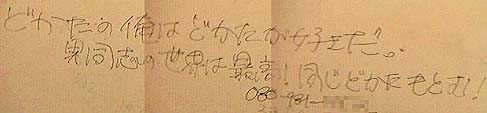 どかたの俺はどかたが好きだ。
男同志の世界は最高!同じどかたもとむ!
080-931-